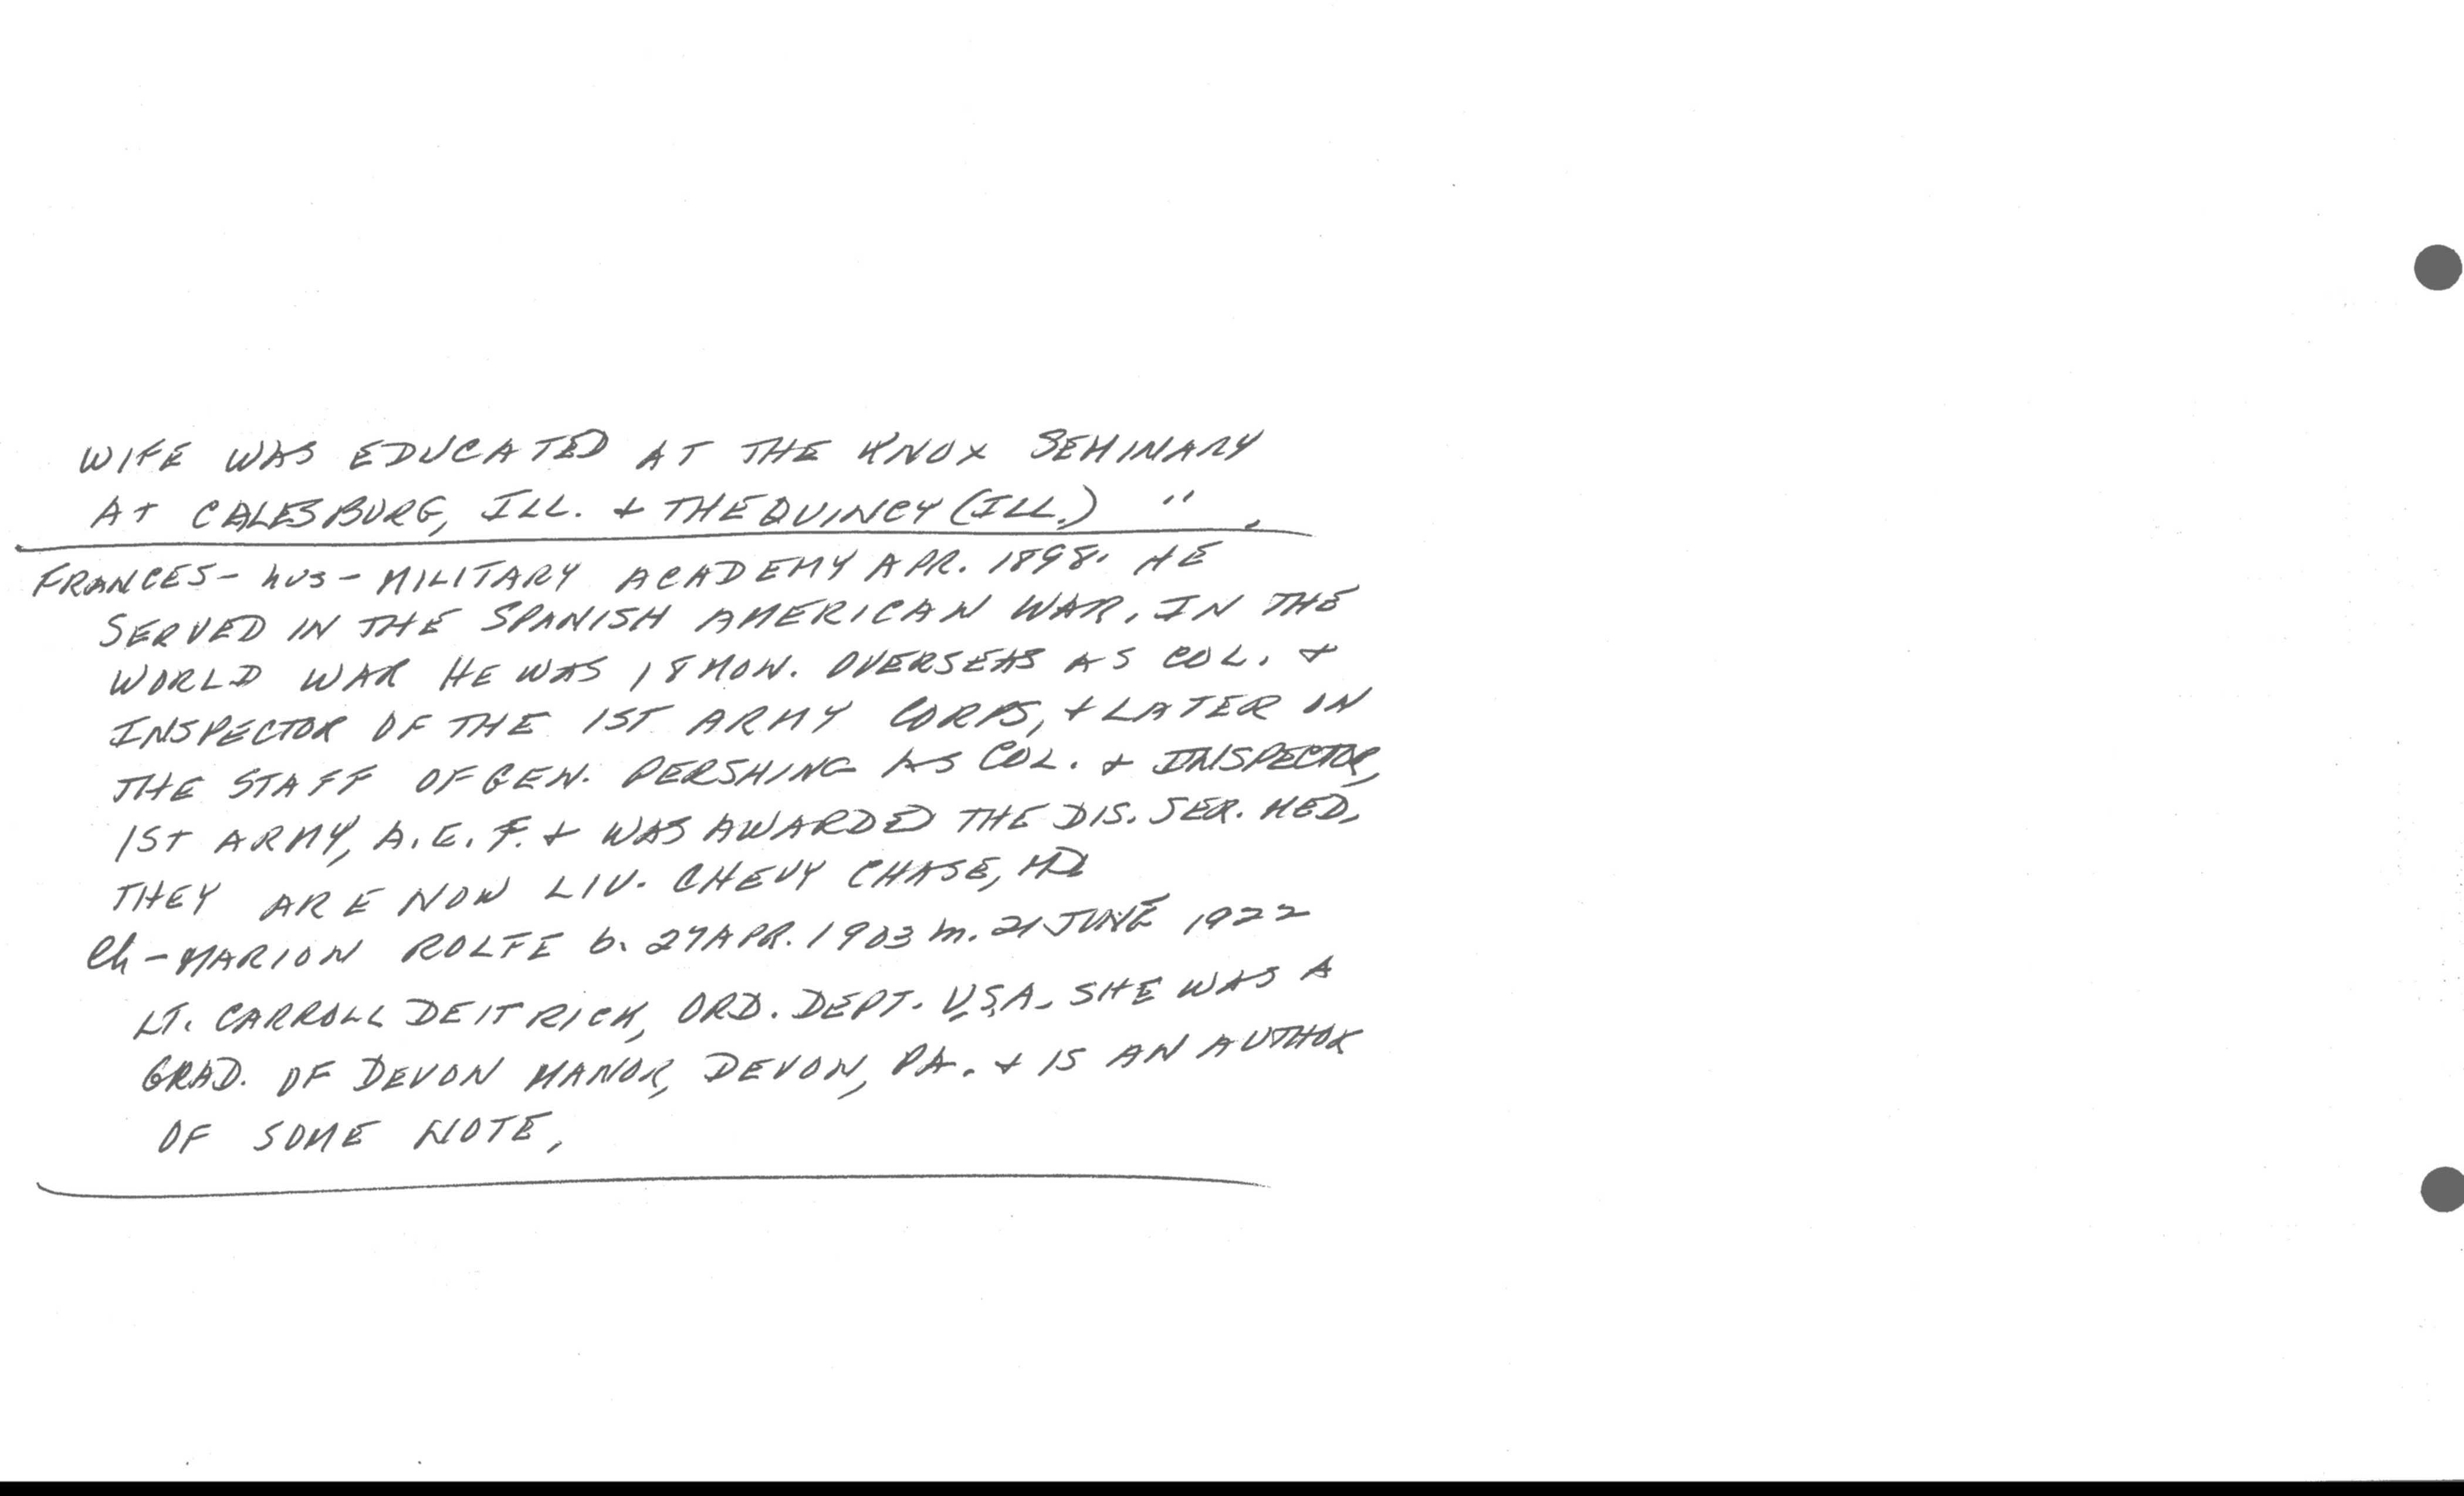 WIFE WAS EDUCATED AT THE KNOX SEMINARY
AT CALESBURG, ILL. & THE QUINCY (ILL.) " .
FRANCES - hus - MILITARY ACADEMY APR. 1898. HE
SERVED IN THE SPANISH AMERICAN WAR. IN THE
WORLD WAR HE WAS 18 MON. OVERSEAS AS COL. &
INSPECTOR OF THE 1ST ARMY CORPS, & LATER ON
THE STAFF OF GEN. PERSHING AS COL. & INSPECTOR,
1ST ARMY, A.E.F. & WAS AWARDED THE DIS. SER. MED.
THEY ARE NOW LIV. CHEVY CHASE, MD
Ch - MARION ROLFE b. 27 APR. 1903 m. 21 JUNE 1922
LT. CARROLL DEITRICK, ORD. DEPT. USA. SHE WAS A
GRAD. OF DEVON MANOR, DEVON, PA. & IS AN AUTHOR
OF SOME NOTE.